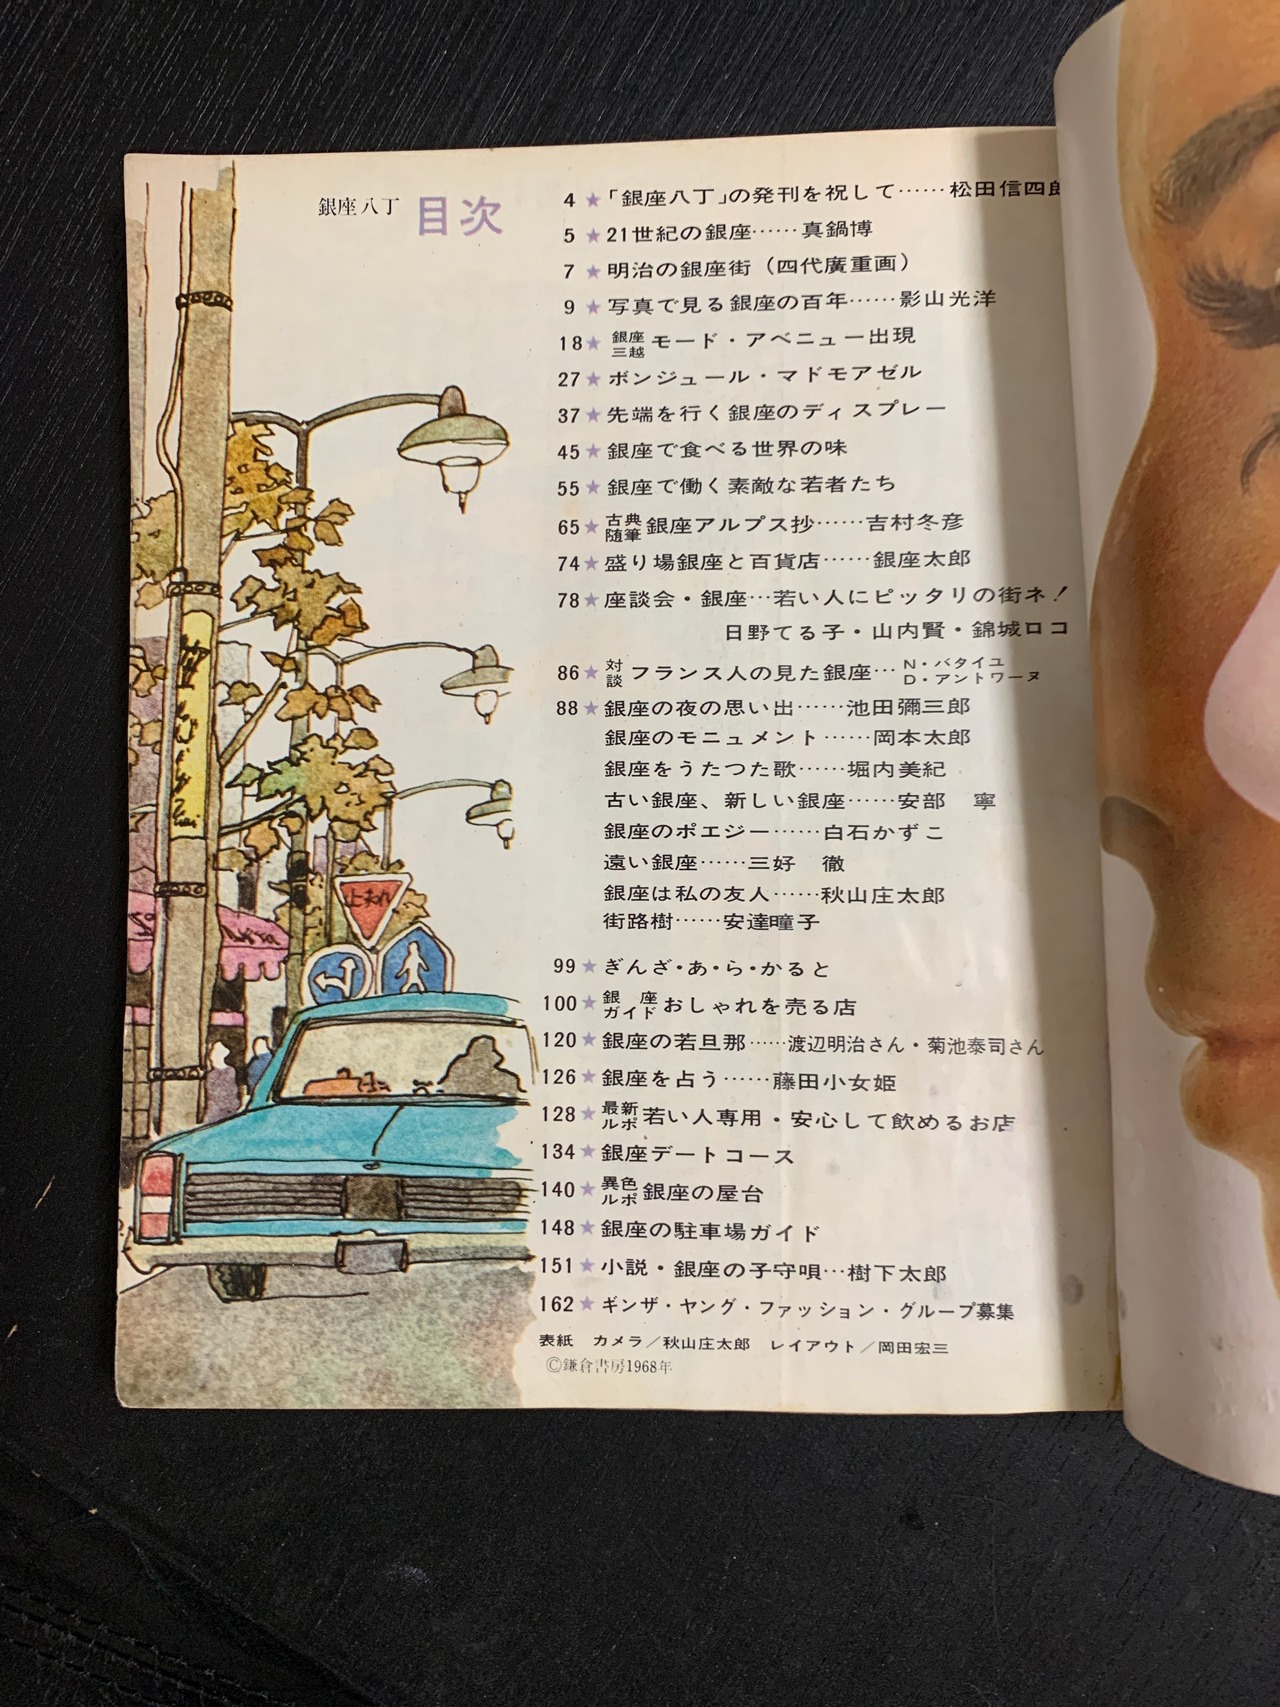 銀座八丁 目次
4★「銀座八丁」の発刊を祝して……松田信四郎
5★21世紀の銀座……真鍋博
7★明治の銀座街（四代廣重画）
9★写真で見る銀座の百年……影山光洋
18★銀座三越モード・アベニュー出現
27★ボンジュール・マドモアゼル
37★先端を行く銀座のディスプレー
45★銀座で食べる世界の味
55★銀座で働く素敵な若者たち
65★古典随筆銀座アルプス抄……吉村冬彦
74★盛り場銀座と百貨店……銀座太郎
78★座談会・銀座…若い人にピッタリの街ネ！
日野てる子・山内賢・錦城ロコ
86★対談フランス人の見た銀座…N・バタイユ D・アントワーヌ
88★銀座の夜の思い出……池田彌三郎
銀座のモニュメント……岡本太郎
銀座をうたつた歌……堀内美紀
古い銀座、新しい銀座……安部 寧
銀座のポエジー……白石かずこ
遠い銀座……三好 徹
銀座は私の友人……秋山庄太郎
街路樹……安達瞳子
99★ぎんざ・あ・ら・かると
100★銀座ガイドおしゃれを売る店
120★銀座の若旦那……渡辺明治さん・菊池泰司さん
126★銀座を占う……藤田小女姫
128★最新ルポ若い人専用・安心して飲めるお店
134★銀座デートコース
140★異色ルポ銀座の屋台
148★銀座の駐車場ガイド
151★小説・銀座の子守唄…樹下太郎
162★ギンザ・ヤング・ファッション・グループ募集
表紙 カメラ／秋山庄太郎 レイアウト／岡田宏三
©鎌倉書房1968年
止まれ